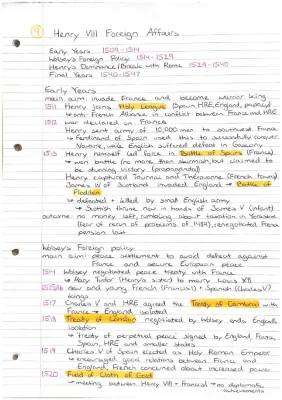 9 Henry VIII Foreign Affairs
Early Years 1509-1514
Wolsey's Foreign Policy 1514-1529
Henry's Dominance/Break with Rome 1529-1540
Final Years 1540-1547
Early Years
main aim: invade France and become warrior king
1511 Henry joins Holy League (Spain, HRE, England, papacy)
↳ anti-French Alliance in conflict between France and HRE
1512 war declared on France
Henry sent army of 10,000 men to southwest France
↳ Ferdinand of Spain used this to successfully conquer
Navarre, while English suffered defeat in Gascony
1513 Henry himself led force in Battle of Spurs (France)
↳ won battle (no more than skirmish, but claimed to
be stunning victory (propaganda))
Henry captured Tournai and Thérouanne (French town)
James IV of Scotland invaded England → Battle of
Flodden
↳ defeated + killed by small English army
↳ Scottish throne now in hands of James V (infant)
outcome: no money left, rumbling about taxation in Yorkshire
(fear of rerun of problems of 1489), renegotiated French
pension lost
Wolsey's Foreign policy
main aim: peace settlement to avoid defeat against
France and secure European peace
1514 Wolsey negotiated peace treaty with France
↳ Mary Tudor (Henry's sister) to marry Louis XII
1515/16 new and young French (Francis I) + Spanish (Charles V)
kings
1517 Charles V and HRE agreed the Treaty of Cambrai with
France → England isolated
1518 Treaty of London negotiated by Wolsey ends England's
isolation
↳ treaty of perpetual peace signed by England, France,
Spain, HRE and smaller states
1519 Charles V of Spain elected as Holy Roman Emperor
↳ encouraged good relations between France and
England, French concerned about increased power
1520 Field of Cloth of Gold
↳ meeting between Henry VIII + Francis I → no diplomatic
achievements